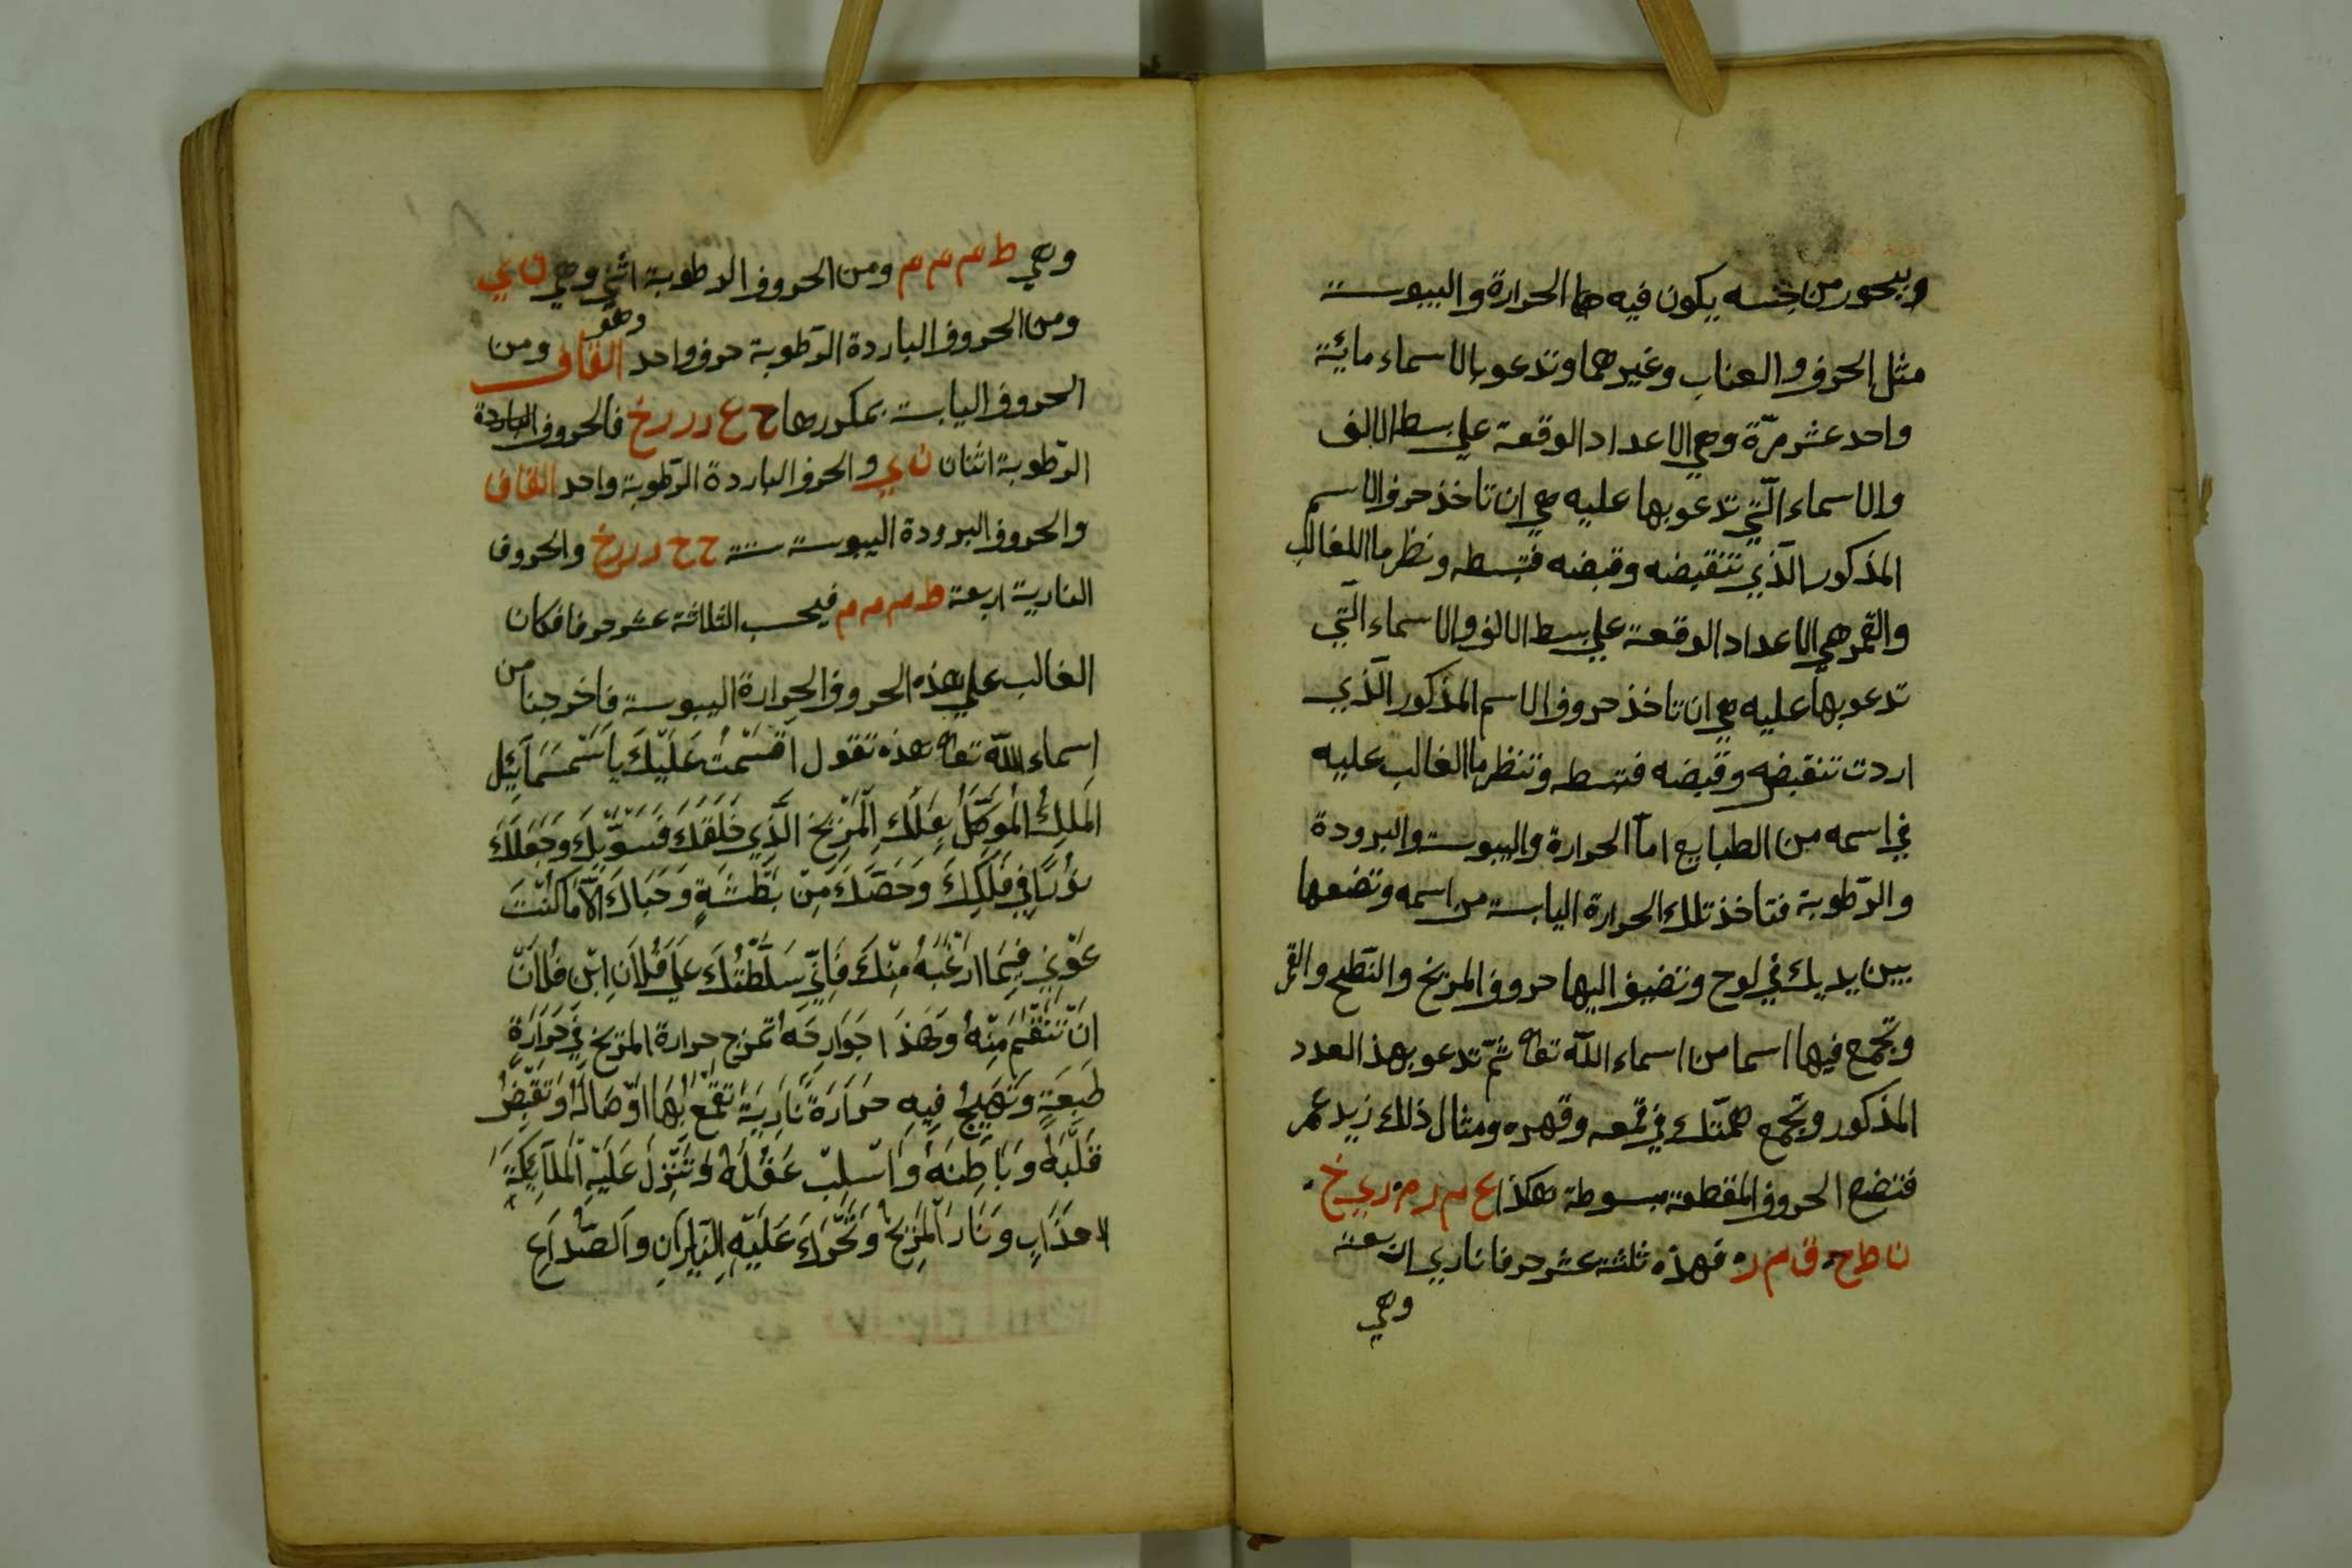 ويبخور من جنسه يكون فيه هما الحرارة واليبوسة
مثل الحرف والعناب وغيرهما وتدعو بالاسماء مائة
واحد عشر مرّة وهي الاعداد الوقعة علي بسط الالف
والاسماء الّتي تدعو بها عليه هي ان تاخذ حرف الاسم
المذكور الّذي تنقيضه وقبضه فتبسطه ونظر ما اللغالب
والقمر هي الاعداد الوقعة علي بسط الالف والاسماء الّتي
تدعو بها عليه هي ان تاخذ حروف الاسم المذكور الّذي
اردت تنقبضه وقبضه فتبسطه وتنظر ما الغالب عليه
في اسمه من الطبايع امّا الحرارة واليبوسة والبرودة
والرّطوبة فتاخذ تلك الحرارة اليابسة من اسمه وتضعها
بين يديك في لوح وتضيف اليها حروف المريخ والنّطح والقمر
وتجمع فيها اسما من اسماء اللّه تعالى ثمّ تدعو بهذ العدد
المذكور وتجمع همّتك في قمعه وقهره ومثال ذلك زيد عمر
فتضع الحروف المقطعة مبسوطة هكذا ع م ر م ر ي خ
ن ط ح ق م ر فهذه ثلثة عشر حرفا ناري اربعة
وهي
وهي ط م م م ومن الحروف الرطوبة اثني وهي ن ي
ومن الحروف الباردة الرّطوبة حرف واحد وهو القاف ومن
الحروف اليابسة بمكورها ح ع ر ر ر خ فالحروف الباردة
الرّطوبة اثنان ن ي والحرف الباردة الرّطوبة واحد القاف
والحروف البرودة اليبوسة ستة ح ح ر ر ر خ والحروف
النارية اربعة ط م م م فيحسب الثلاثة عشر حرفا فكان
الغالب علي هذه الحروف الحرارة اليبوسة فاخرجنا من
اسماء اللّه تعالى هذه تقول اقسَمْتُ عَلَيْكَ يا سَمْسَمَآئِيْل
المَلِكُ المُوَكَّلُ بِفَلَكِ المَرِّيخ الَّذِي خَلَقَكَ فَسَوّيكَ وَجَعَلَكَ
نُورًا فِي فَلَكِكَ وَخَصَّكَ مِنْ بَطْشَةٍ وَحَبَاكَ اِلَّا مَا كُنْتَ
عَوْنِي فِيمَا ارْغَبُهُ مِنْكَ فَاِنِّي سَلَّطْتُكَ عَلَي فُلَانِ ابْن فُلَانْ
انْ تَنْتَقِمَ مِنْهُ وَبهَذَ اجَوَارِحَهُ تمزج حرارة المرّيخ فِي حَرَارَةِ
طَبِعَةِ وَتُهَيِّجُ فِيهِ حَرَارَةً نَارِيَةَ تَقْمَعُ بِهَا اوْصَالَهُ وَتَقْبِضُ
قَلْبَهُ وَبَاطِنَهُ وَاسْلِبْ عَقْلَهُ وَتَنْزِلَ عَلَيْهِ المَلَآئِكَةِ
لاعذَابِ وَنَارَ المَرِّيخ وَتُحَّرِكَ عَلَيْهِ النِّيْرَانِ وَالصُّدَاعِ